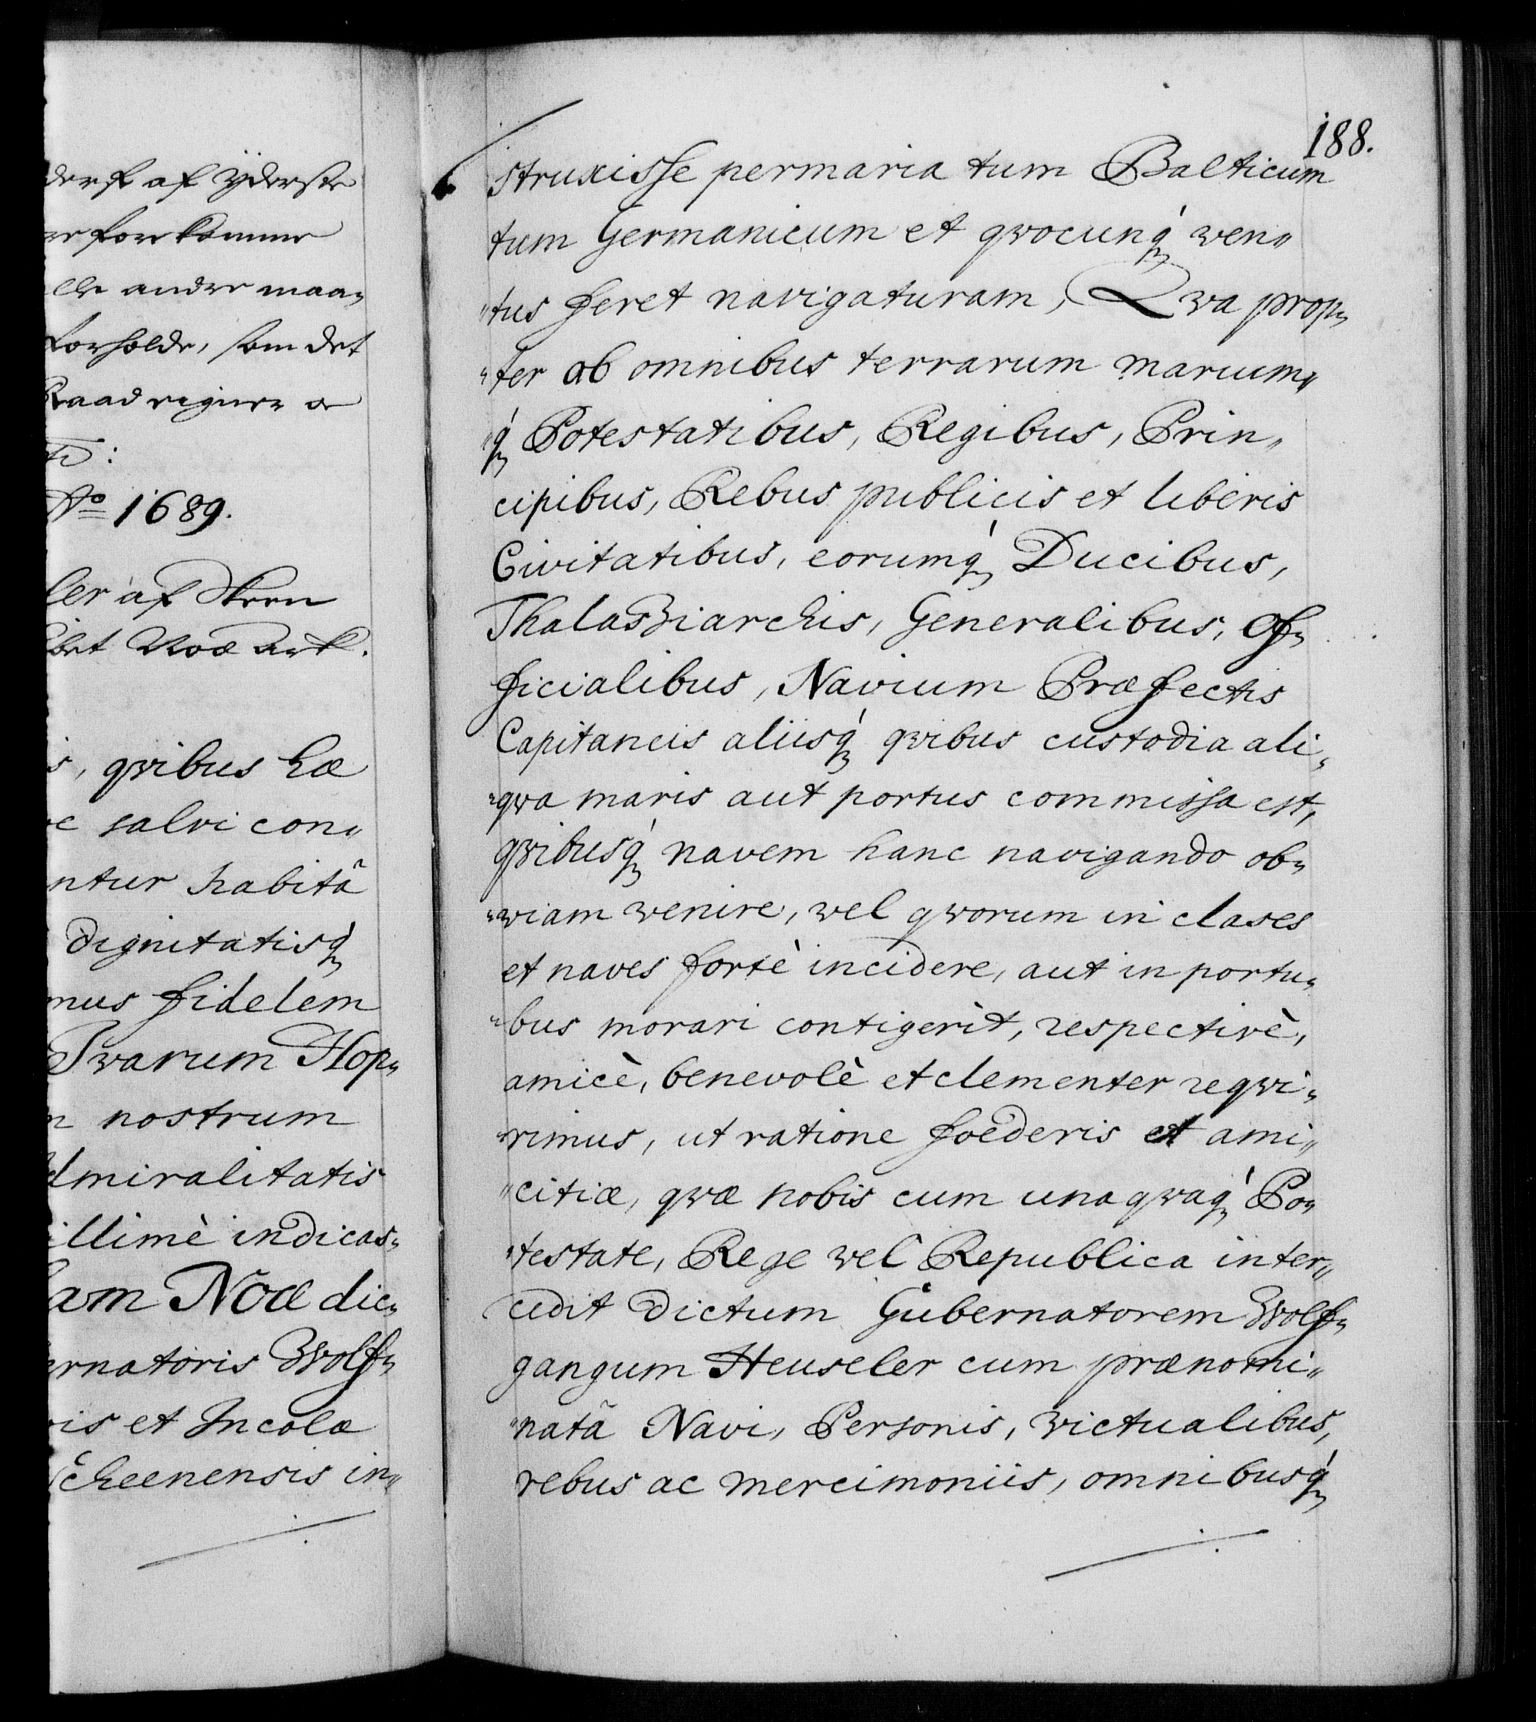 derf af ÿderste
forekomme
alle andre maa„
forholde, som det
Raad eigner oc
Ao 1689.
ler af Skeen
Noæ Ark.
s, qvibus hæ
salvi con„
ntur habitâ
dignitatisq́
mus fidelem
Svarum Hop„
nostrum
dmiralitatis
illimè indicas„
am Noæ dic„
ernatoris Wolf„
is et Incolæ
Scheenensis in„
188.
struxisse permaria tum Balticum
tum Germanicum et qvocunq́ ven„
„tus feret navigaturam, Qva prop„
„ter ab omnibus terrarum marium„
„q́ Potestatibus, Regibus, Prin„
cipibus, Rebus publicis et liberis
Civitatibus, eorumq́ Ducibus,
Thalassiarchis, Generalibus, Of„
ficialibus, Navium Præfectis
Capitaneis aliisq́ qvibus custodia ali„
„qva maris aut portus commissa est,
qvibusq́ navem hanc navigando ob„
„viam venire, vel qvorum in clases
et naves fortè incidere, aut in portu„
„bus morari contigerit, respectivè,
amicè, benevolè et clementer reqvi„
„rimus, ut ratione foederis et ami„
„citiæ, qvæ nobis cum unaqvaq́ Po„
„testate, Rege vel Republica inter„
cedit dictum Gubernatorem Wolf„
gangum Heuseler cum prænomi„
„natâ Navi, Personis, victualibus,
rebus ac mercimoniis, omnibusq́